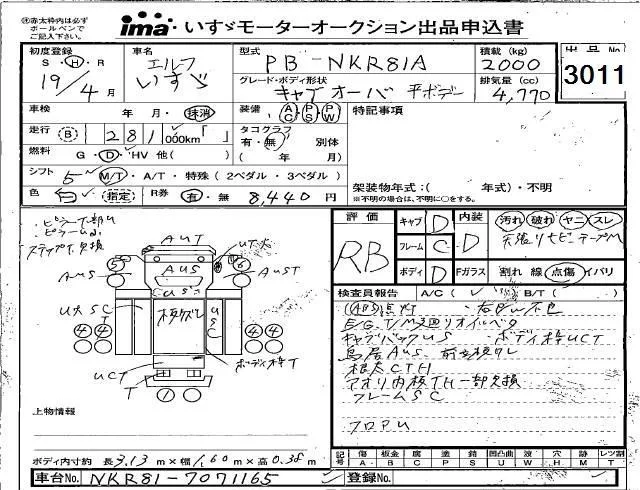 ※赤太枠内は必ず
ボールペンで
ご記入下さい。
ima いすゞモーターオークション出品申込書
初度登録 車名 型式 積載 (kg) 出品No
S・H・R エルフ PB-NKR81A 2000
3011
19/4月 いすゞ グレード・ボディ形状 排気量 (cc)
キャブオーバ 平ボデー 4,770
車検 年・月・抹消 装備 AC PS PW 特記事項
走行 B 281,000km「 」 タコグラフ
有・無 別体
燃料 G・D・HV 他( ) ( 年 月)
シフト 5 M/T・A/T・特殊(2ペダル・3ペダル)
架装物年式:( 年式)・不明
色 白 (指定) R券 有・無 8,440円
※不明の場合は、不明に○をする。
評価 キャブ D 内装 汚れ 破れ ヤニ スレ
RB フレーム C D
ボディ D Fガラス 割れ 線 点傷 イバリ
検査員報告 A/C( ) B/T( )
ステップ欠損
AUT
AUS AUS AUST
CUS
U大SC
USC
UCT ボディ枠T
T
E/G.T/M廻りオイルベタ
キャブバックUS ボディ枠UCT
鳥居AUS
根太CTH
アオリ内板TH 一部欠損
フレームSC
フロアU
上物情報
ボディ内寸約 長3.13m×幅1.60m×高0.38m
記号 傷A 板金B 腐C 塗P 錆S 凹凸曲U 波W 穴H 跡M レツ割T
車台No. NKR81-7071165 登録No.